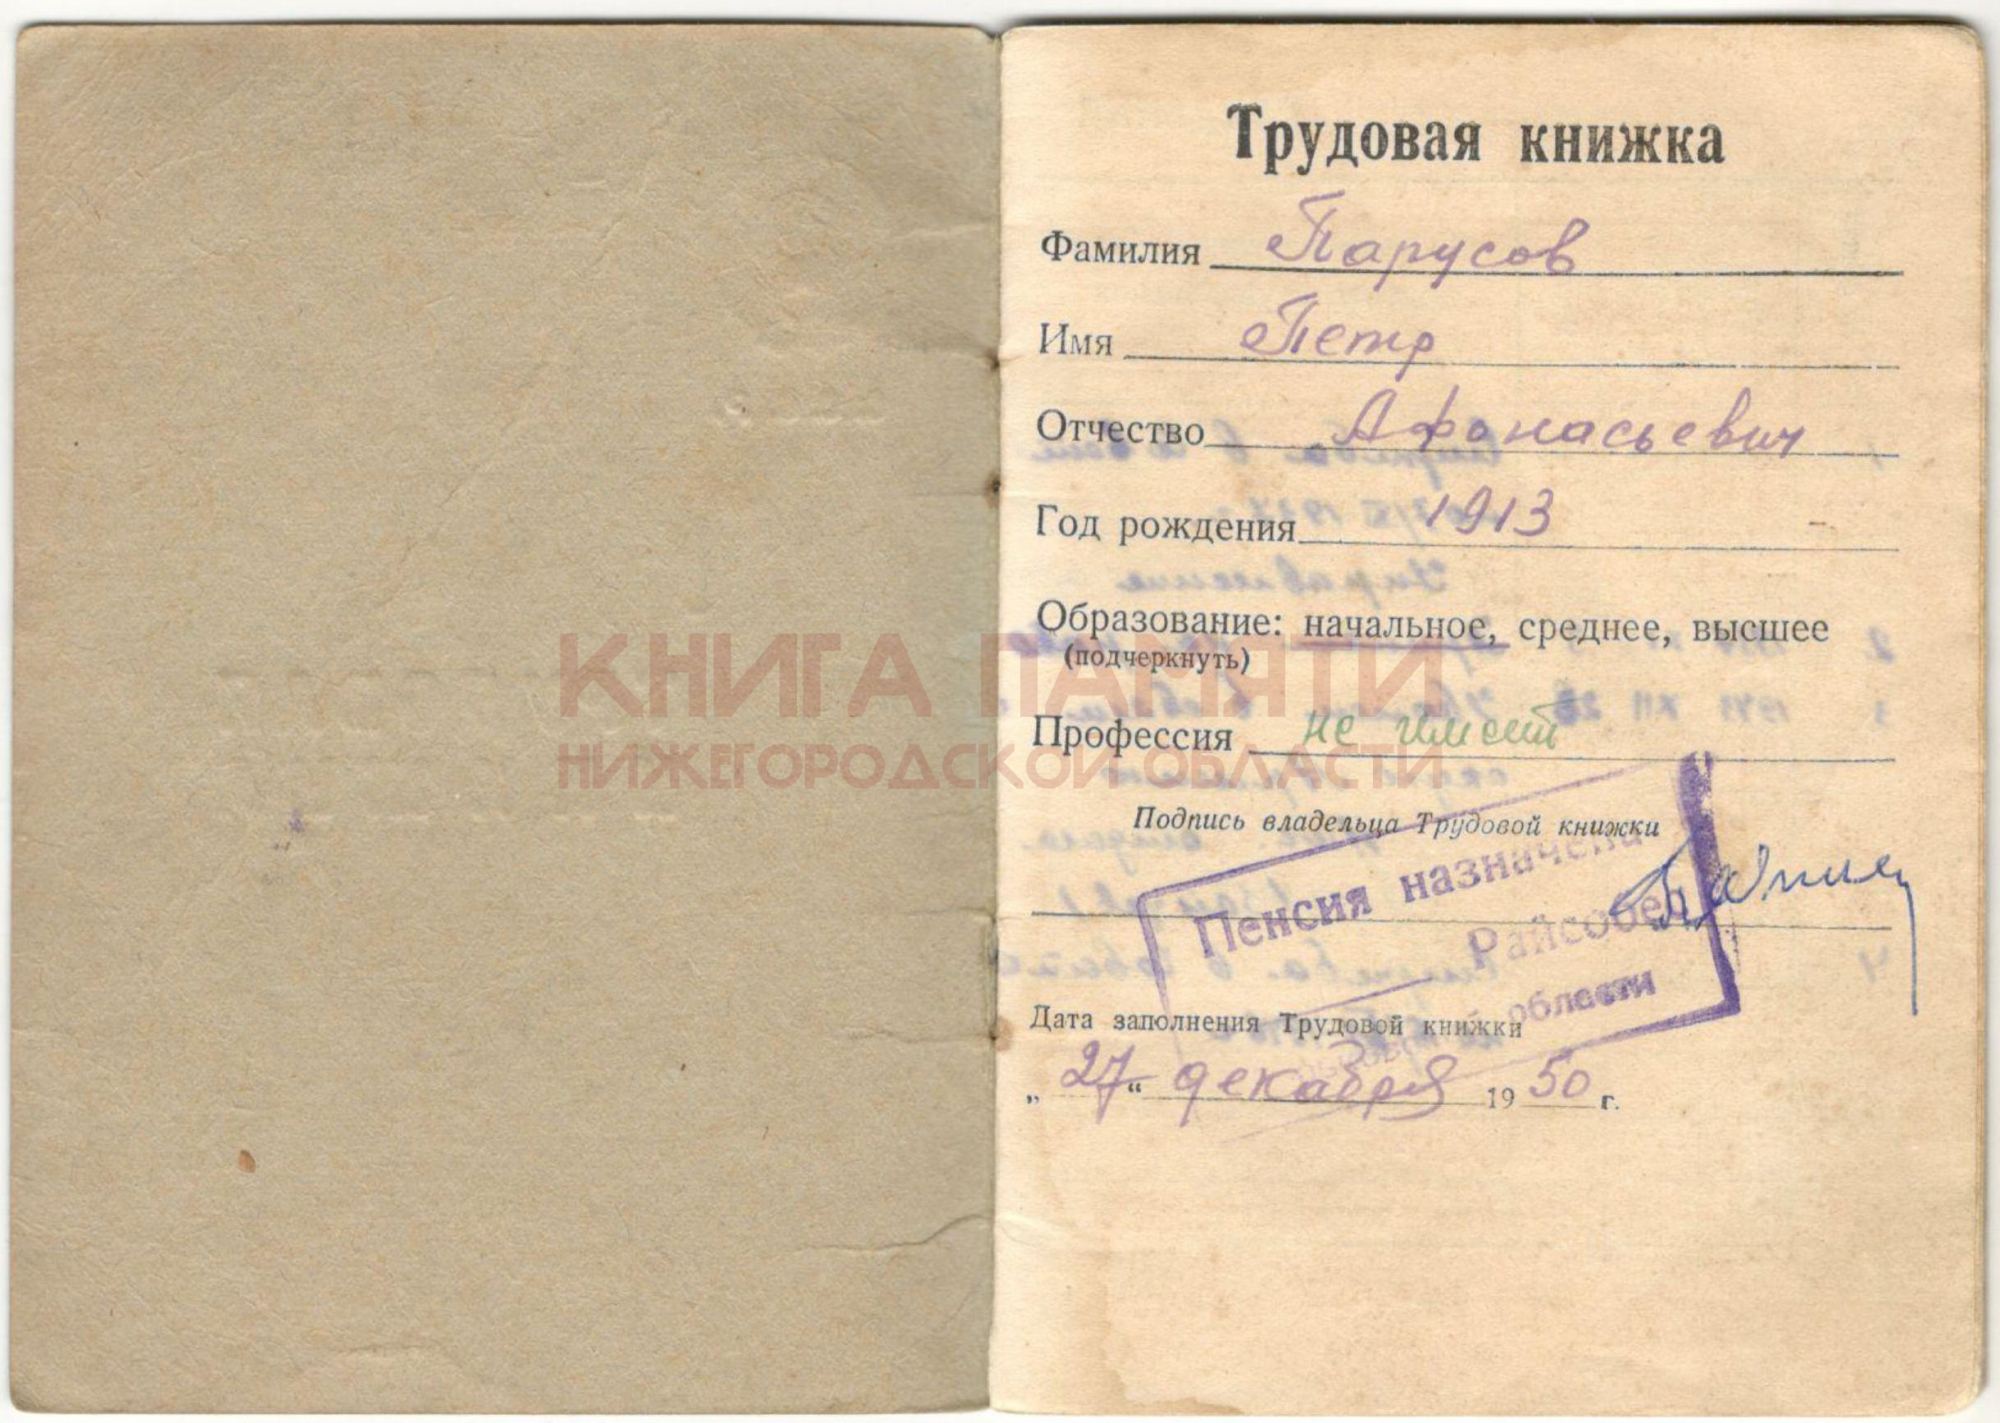 Трудовая книжка
Фамилия Парусов
Имя Петр
Отчество Афонасьевич
Год рождения 1913
Образование: начальное, среднее, высшее
(подчеркнуть)
КНИГА ПАМЯТИ
Профессия не имеит
НИЖЕГОРОДСКОЙ ОБЛАСТИ
Подпись владельца Трудовой книжки
Пенсия назначена
Райсобес
области
Дата заполнения Трудовой книжки
„ 27 “ декабря 19 50 г.